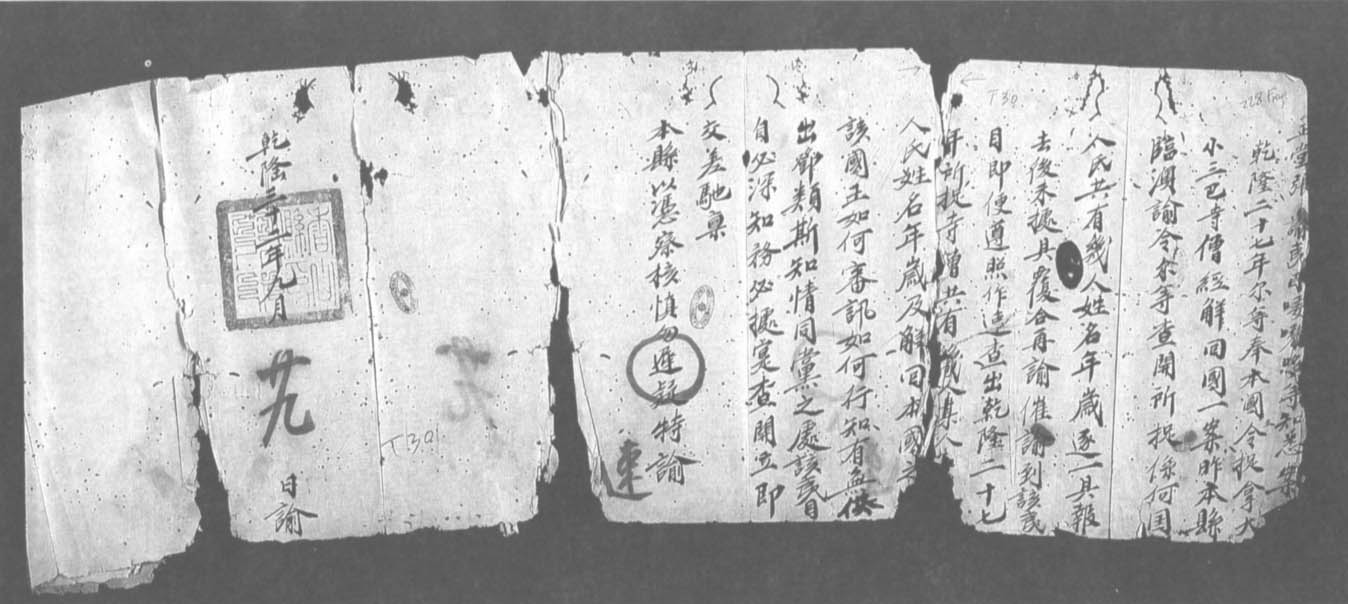 正堂張 諭夷目唩嚟哆等知悉案
乾隆二十七年尔等奉本國令捉拿大
小三巴寺僧經解回國一案昨本縣
臨澳諭令尔等查開所捉係何国
人氏共有幾人姓名年歲逐一具報
去後未據具覆合再諭催諭到該夷
目即便遵照作速查出乾隆二十七
年所捉寺僧共有幾人俱
人氏姓名年歲及解回本國
該國王如何審訊如何行知有無供
出鄧類斯知情同黨之處該夷目
自必深知務必據寔查開立即
交差馳稟
本縣以憑察核慎勿遲疑特諭
速
乾隆三十一年九月 廿九 日諭
T30
T301